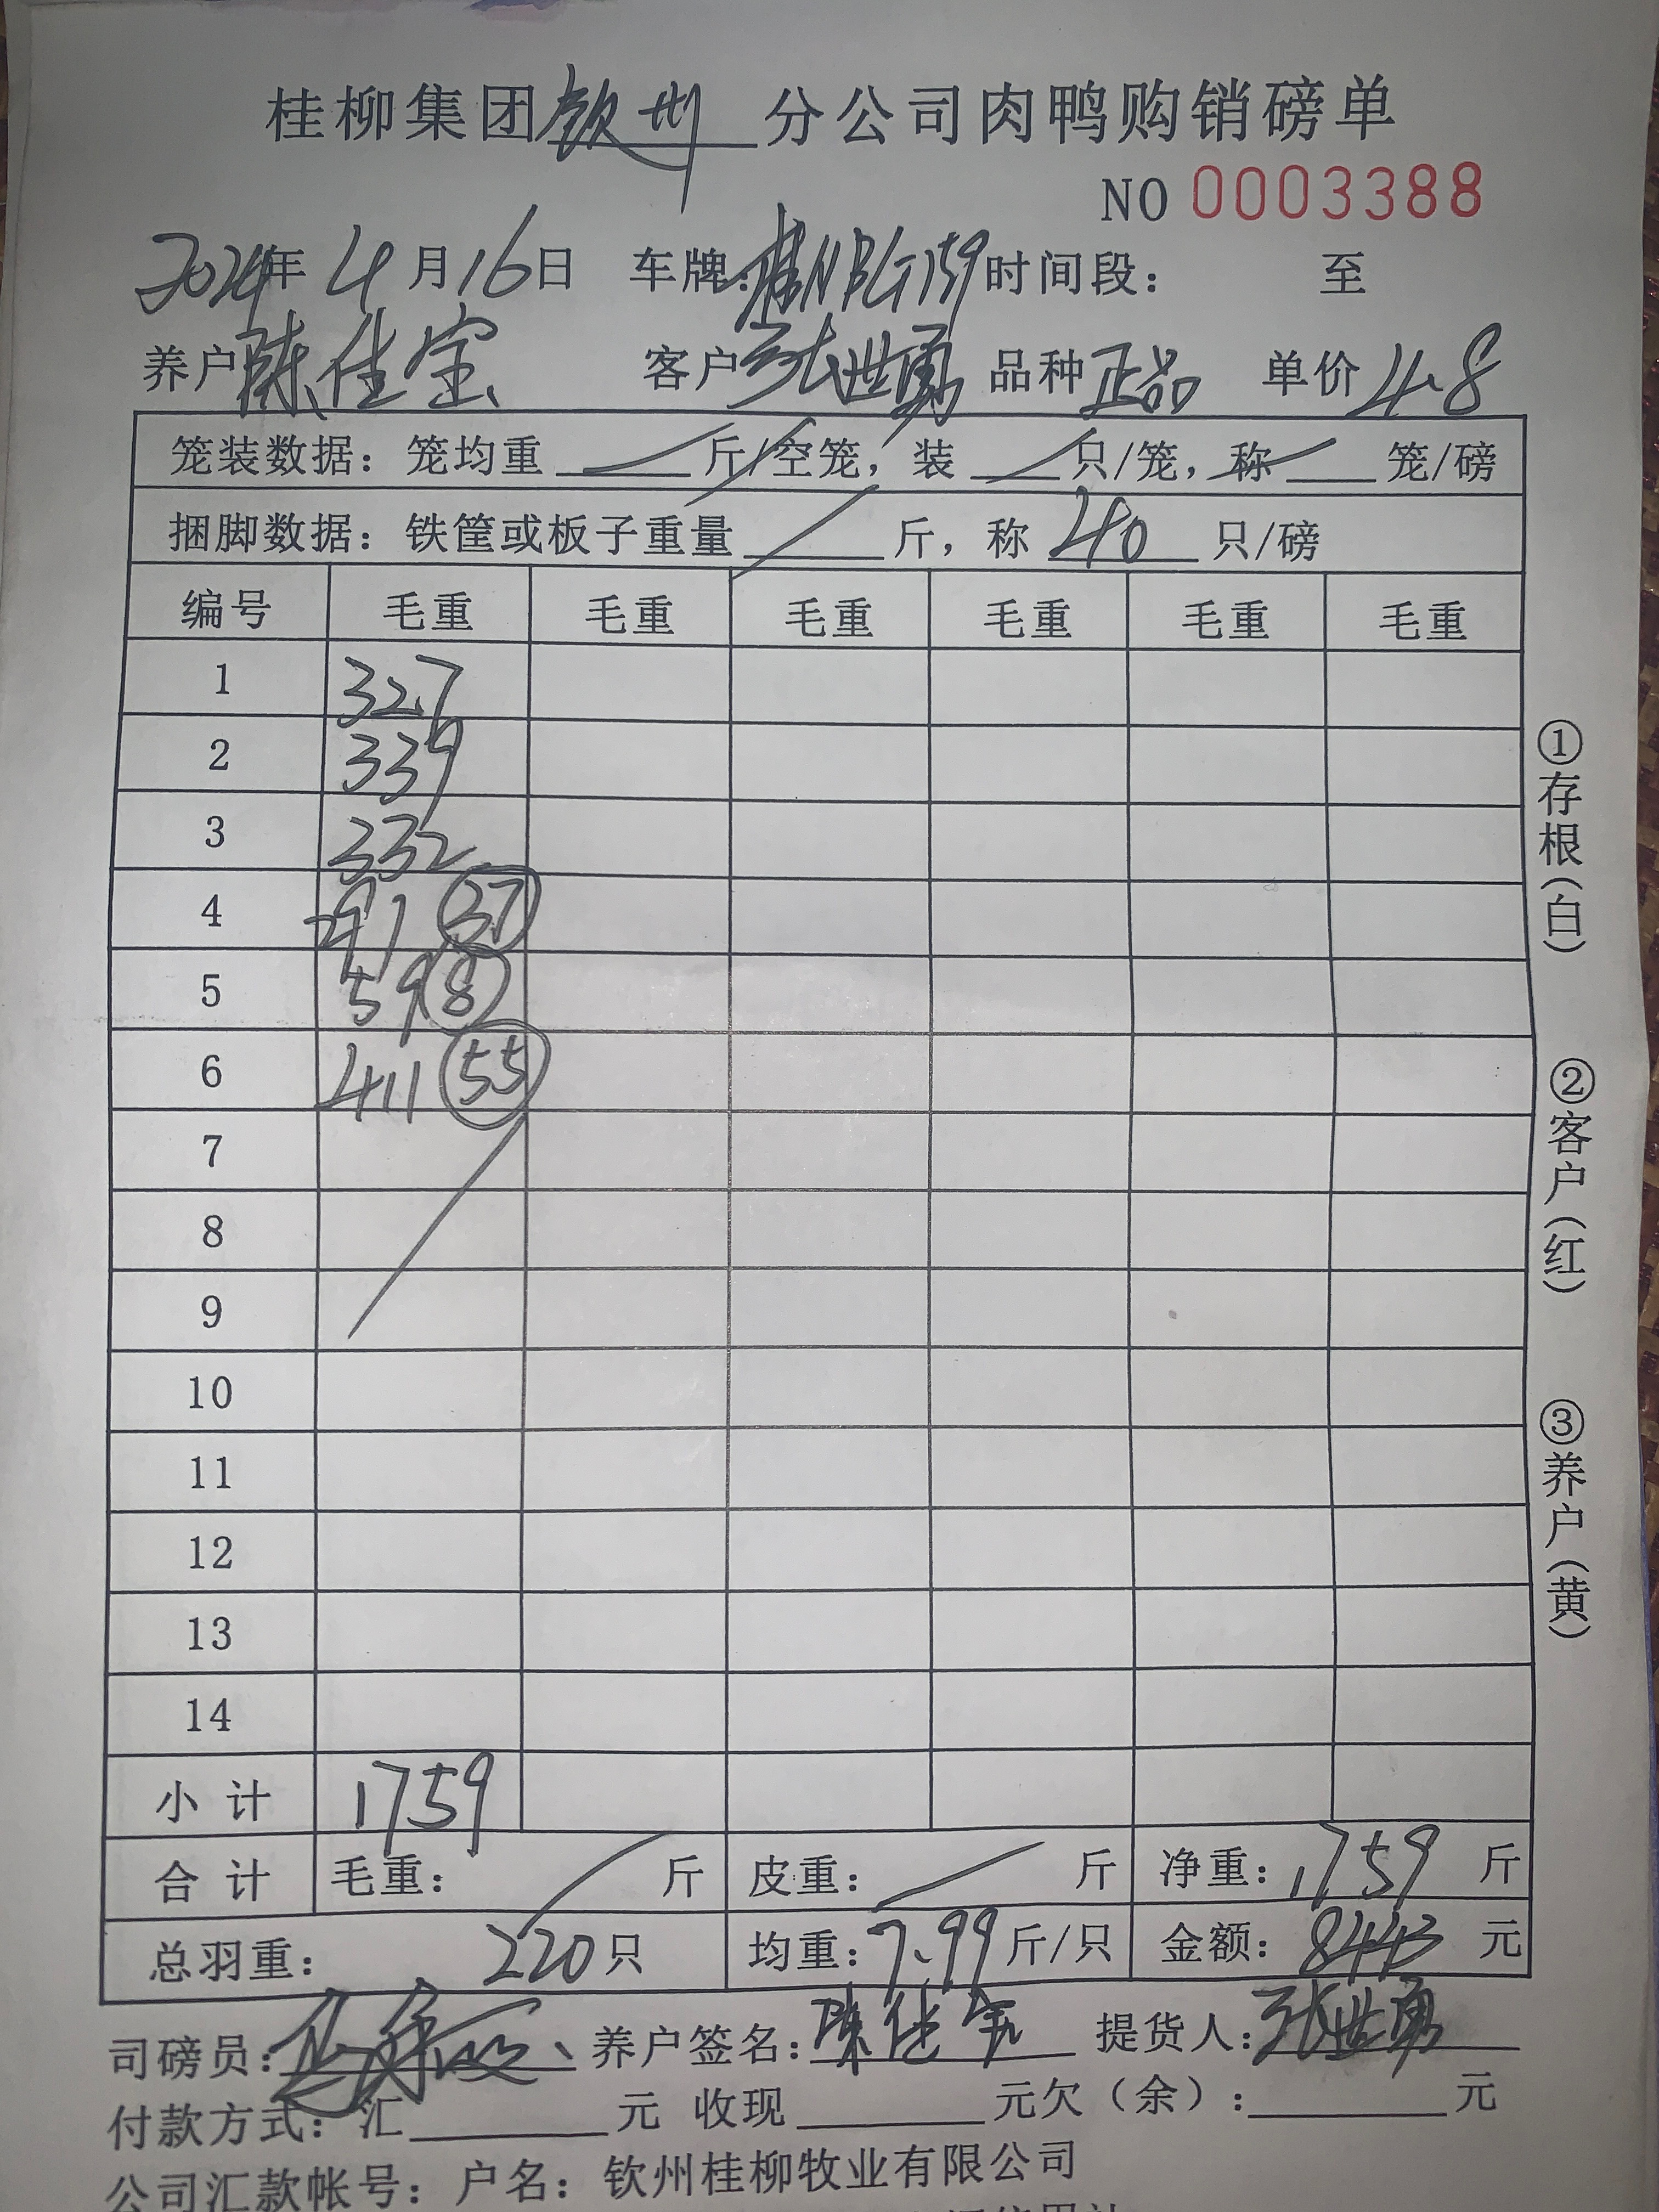 桂柳集团钦州分公司肉鸭购销磅单
NO 0003388
2024年4月16日 车牌:桂NBG159 时间段: 至
养户陈佳宝 客户张世勇 品种正品 单价4.8
笼装数据:笼均重 斤/空笼,装 只/笼,称 笼/磅
捆脚数据:铁筐或板子重量 斤,称40只/磅
编号 毛重 毛重 毛重 毛重 毛重 毛重
1 327
2 339
3 332
4 291 37
5 59 8
6 411 55
7
8
9
10
11
12
13
14
小计 1759
合计 毛重: 斤 皮重: 斤 净重:1759斤
总羽重: 220只 均重:7.99斤/只 金额:8443元
司磅员: 养户签名:陈佳宝 提货人:张世勇
付款方式:汇 元 收现 元欠(余): 元
公司汇款帐号:户名:钦州桂柳牧业有限公司
①存根(白)
②客户(红)
③养户(黄)